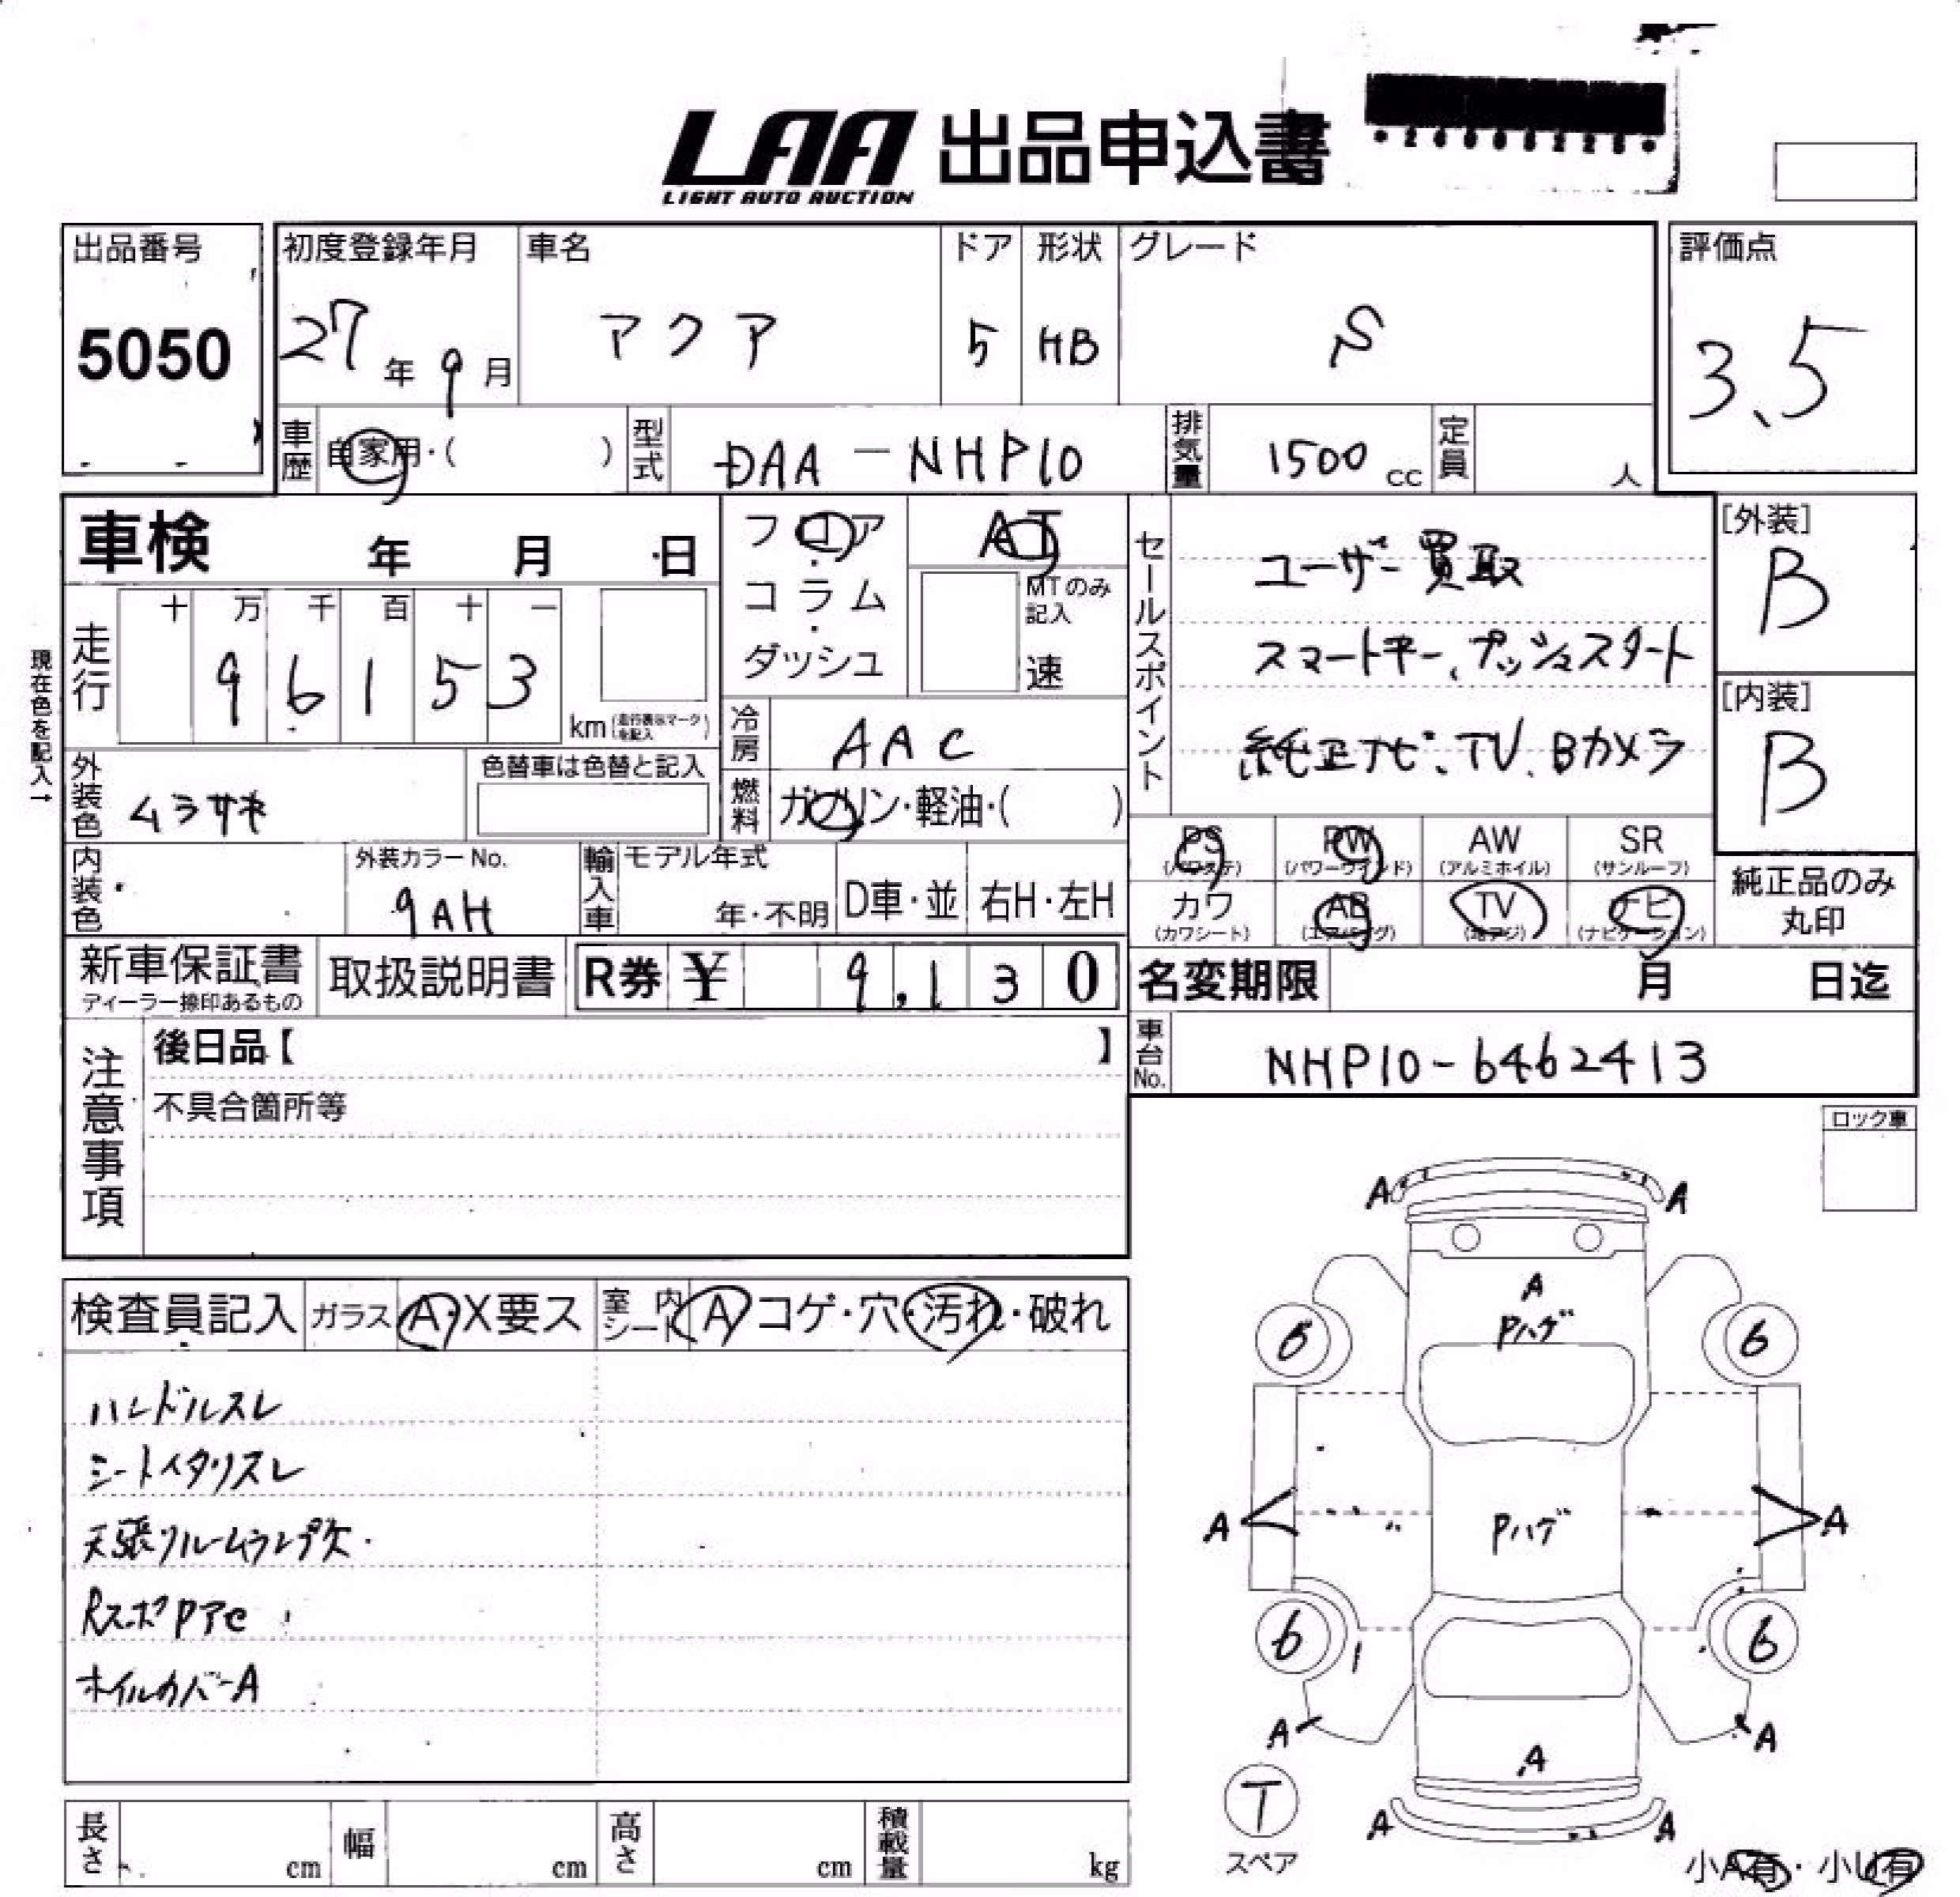 LAA 出品申込書
LIGHT AUTO AUCTION
出品番号
5050
初度登録年月
27年9月
車名
アクア
ドア
5
形状
HB
グレード
S
評価点
3.5
車歴
自家用・( )
型式
DAA-NHP10
排気量
1500 cc
定員
人
車検 年 月 日
フロア・コラム・ダッシュ
AT
MTのみ記入
速
セールスポイント
ユーザー買取
スマートキー、プッシュスタート
純正ナビ、TV、Bカメラ
[外装]
B
[内装]
B
現在色を記入→
走行
十 万 千 百 十 一
9 6 1 5 3
km (走行表示マークを記入)
冷房
AAC
外装色
ムラサキ
色替車は色替と記入
燃料
ガソリン・軽油・( )
PS (パワステ)
PW (パワーウインド)
AW (アルミホイル)
SR (サンルーフ)
カワ (カワシート)
AB (エアバッグ)
TV (地デジ)
ナビ (ナビゲーション)
純正品のみ丸印
内装色
外装カラーNo.
9AH
輸入車
モデル年式
年・不明
D車・並
右H・左H
新車保証書
ディーラー捺印あるもの
取扱説明書
R券 ¥ 9,130
名変期限 月 日迄
車台No.
NHP10-6462413
注意事項
後日品【 】
不具合箇所等
ロック車
検査員記入
ガラス A・X要ス
室内シート A コゲ・穴・汚れ・破れ
ハンドルスレ
シートヘタリスレ
天張リルームランプ欠
RスポPアセ
ホイルカバーA
A A
A
Pハゲ
6 6
A Pハゲ A
6 6
A A
A
T
スペア
A A
小A有・小U有
長さ cm
幅 cm
高さ cm
積載量 kg